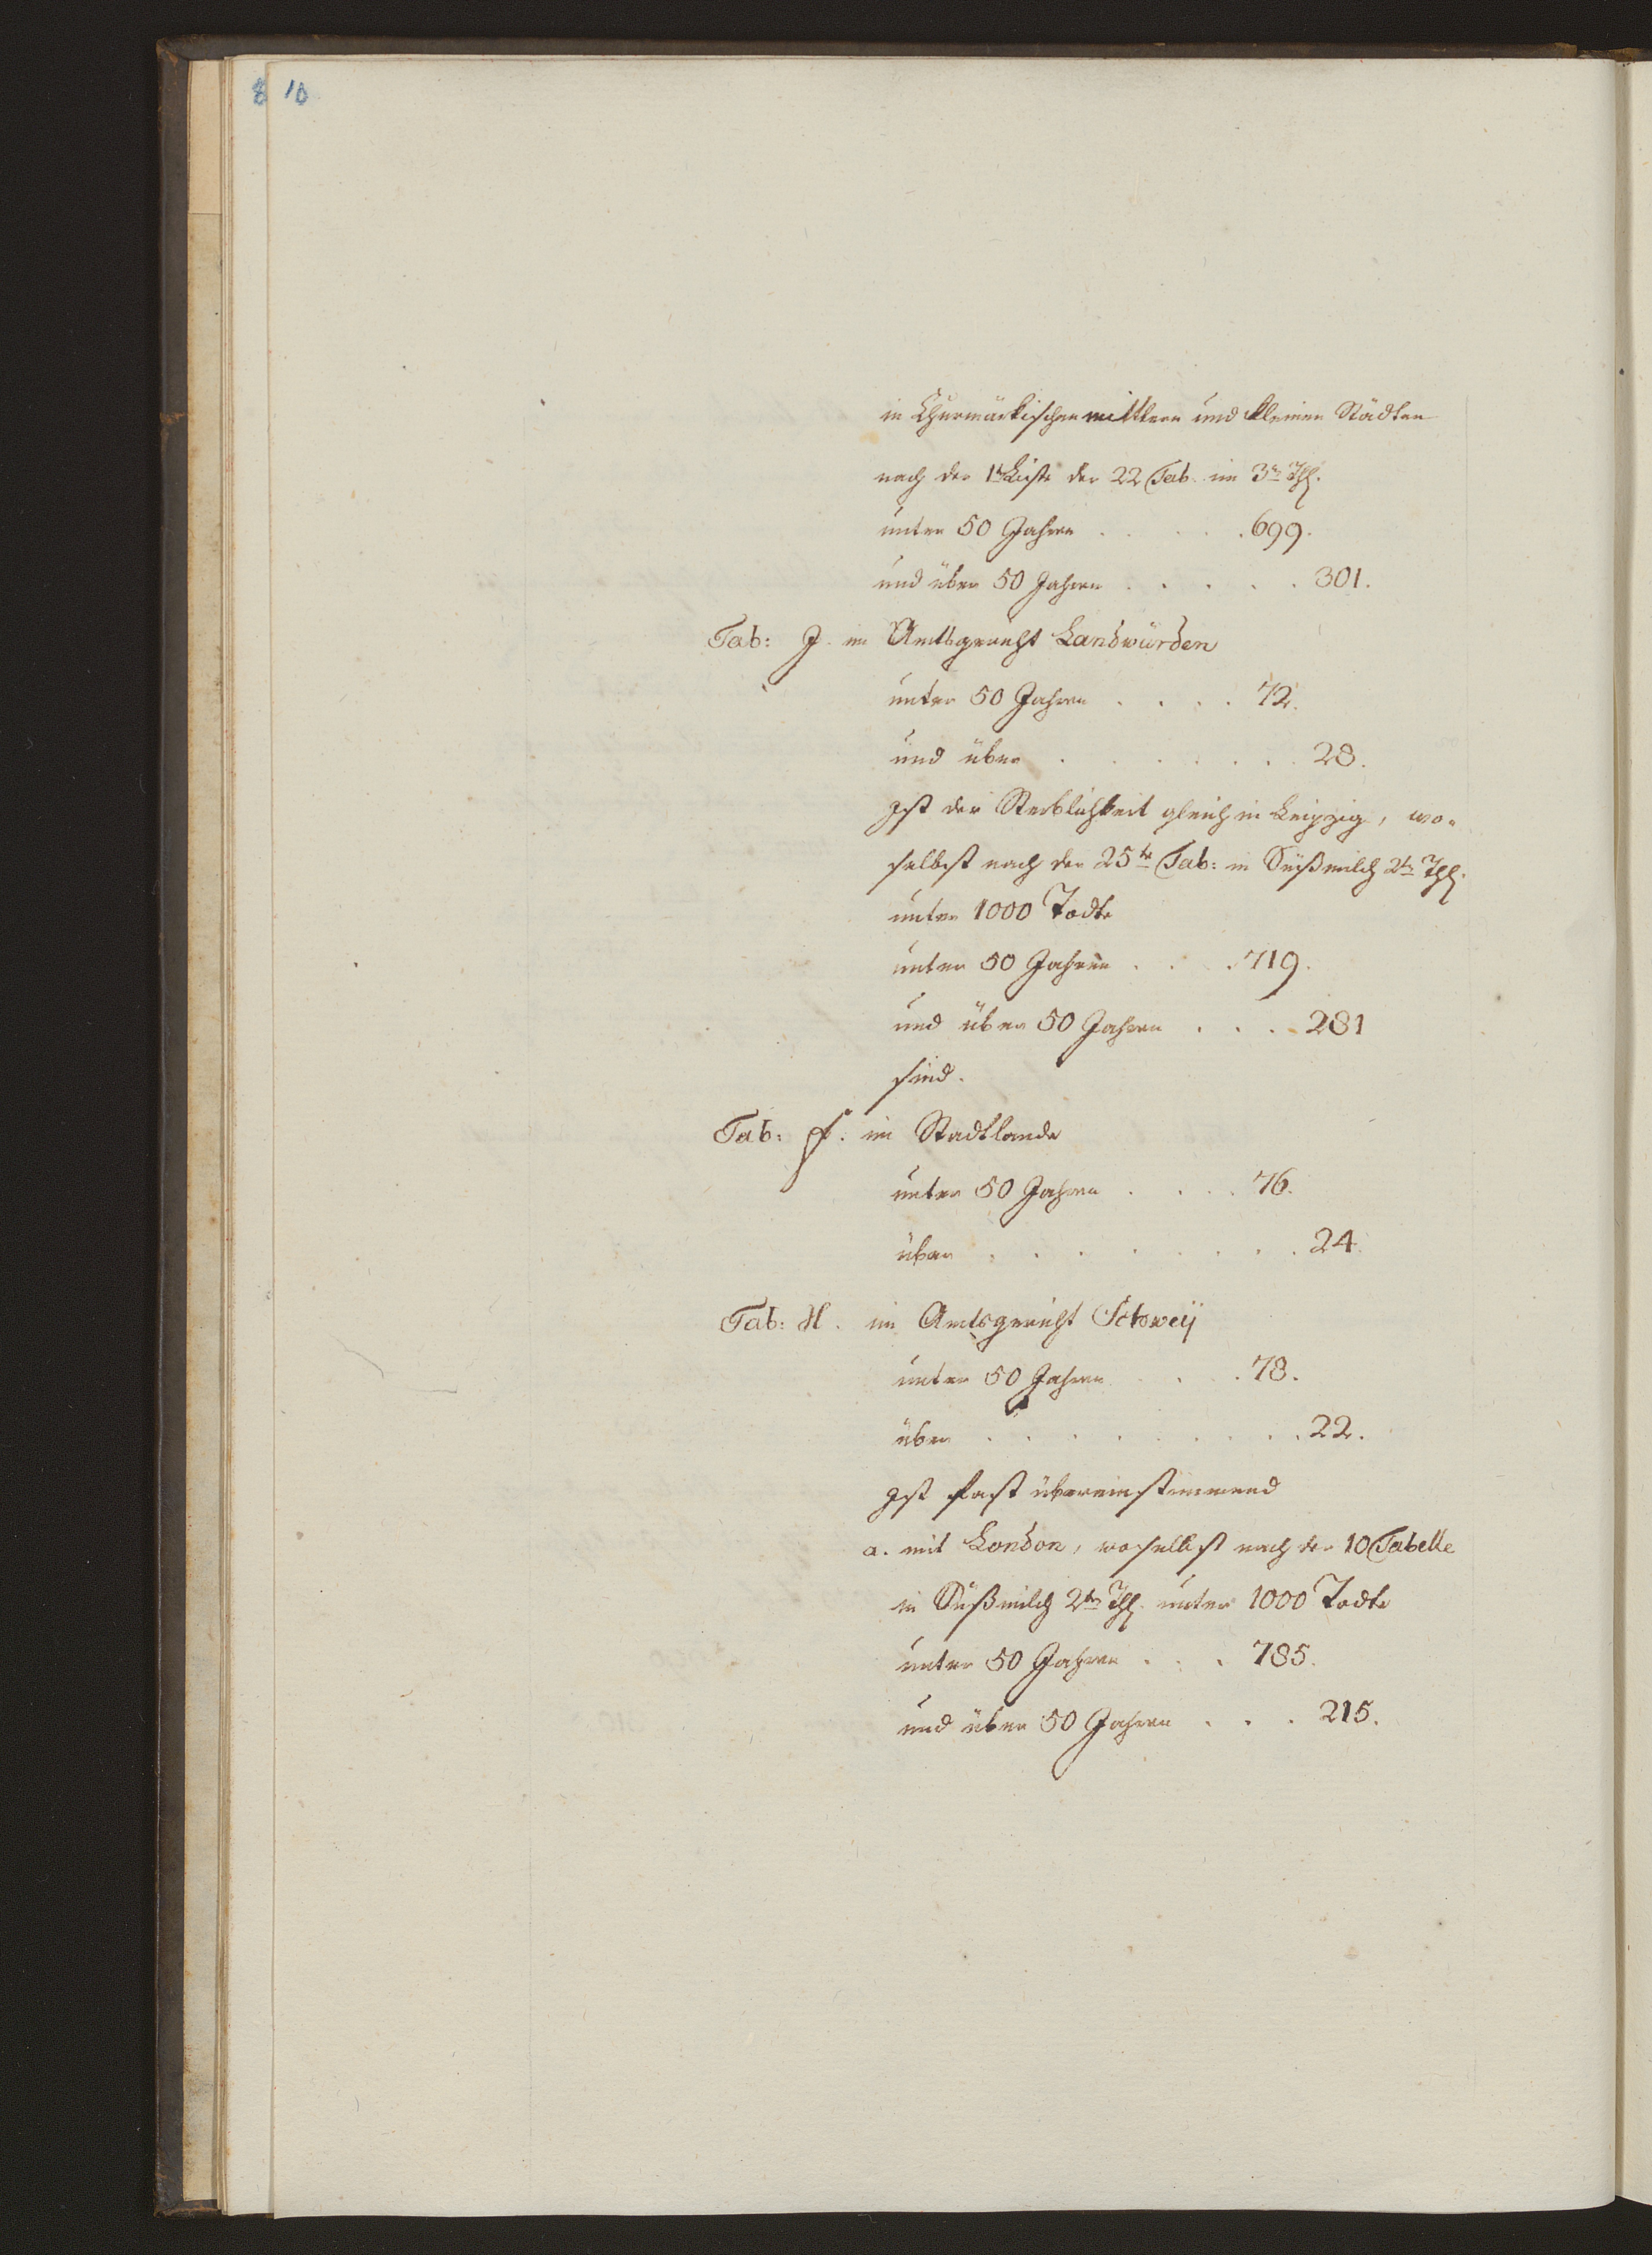 8 10
in Churmärkischen mittlern und kleinen Städten
nach der 1t Liste der 22 Tab. im 3tn Thl.
unter 50 Jahren . . . . . 699.
und über 50 Jahren . . . . . 301.
Tab: J. im Amtsgericht Landwürden
unter 50 Jahren . . . . 72.
und über . . . . . . . 28.
Ist der Sterblichkeit gleich in Leipzig, wo-
selbst nach der 25te Tab: in Süßmilch 2tn Thl.
unter 1000 Todte
unter 50 Jahren . . . 719.
und über 50 Jahren . . . . 281
sind.
Tab: f. im Stadtlande
unter 50 Jahren . . . . 76.
über . . . . . . . . 24.
Tab: H. im Amtsgericht Schweÿ
unter 50 Jahren . . . 78.
über . . . . . . . . 22.
Ist fast übereinstimmend
a. mit London, woselbst nach der 10 Tabelle
in Süßmilch 2tn Thl. unter 1000 Todte
unter 50 Jahren . . . 785.
und über 50 Jahren . . . 215.